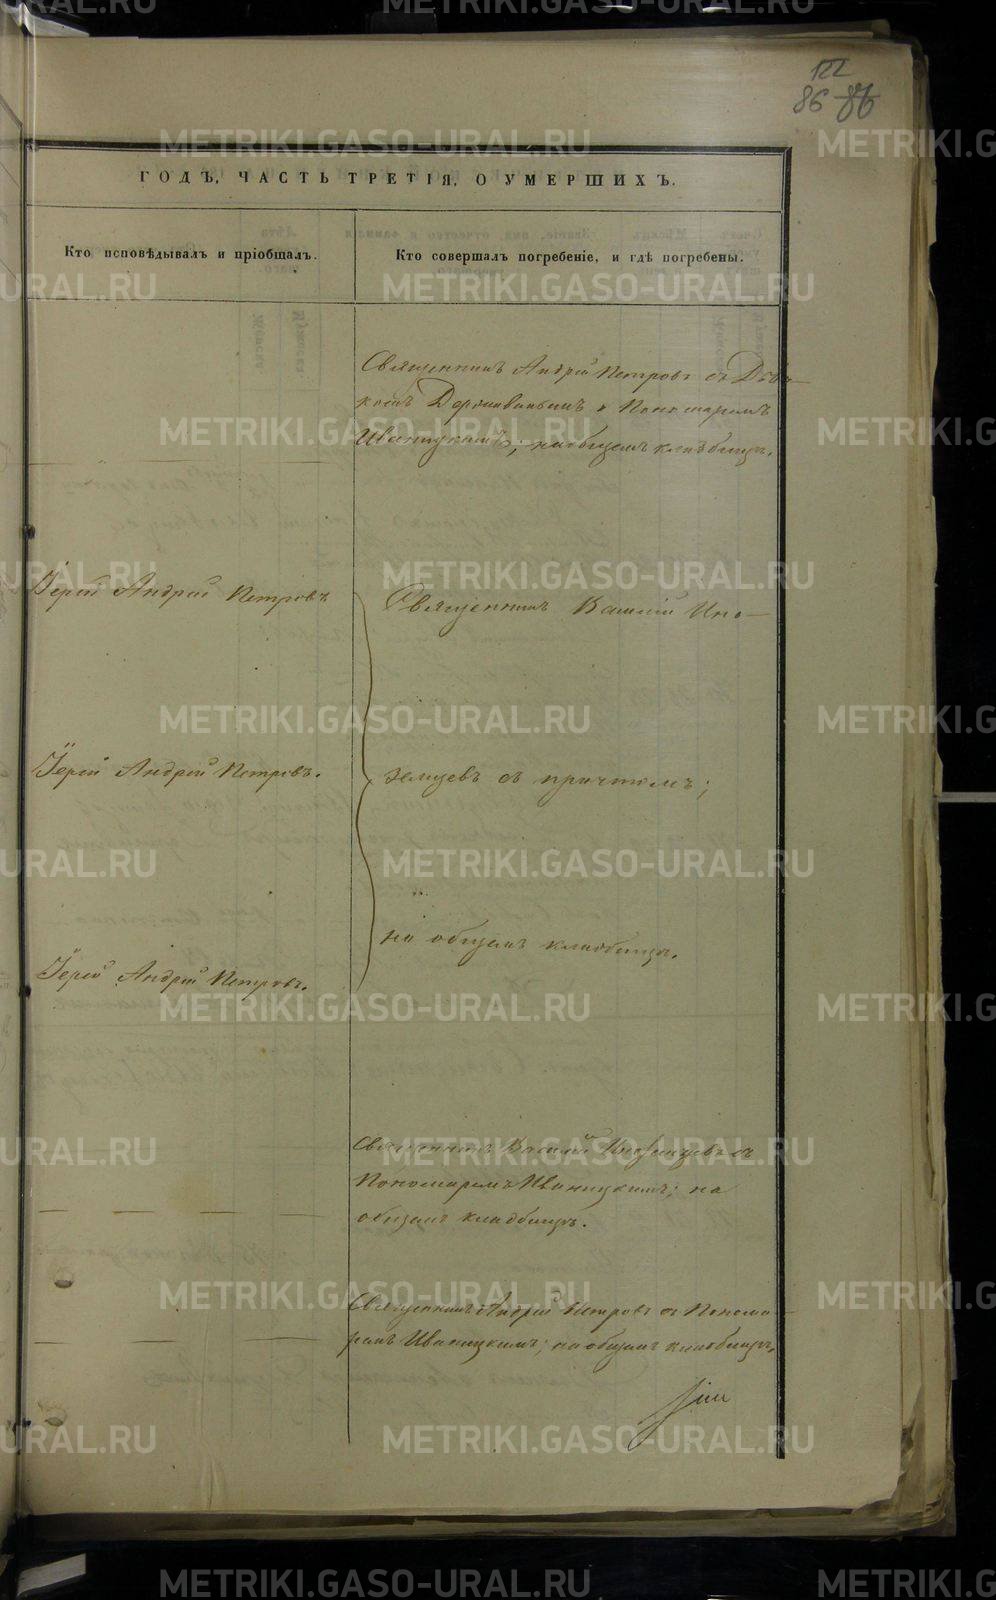 122
86 86
ГОДЪ, ЧАСТЬ ТРЕТІЯ, О УМЕРШИХЪ.
Кто исповѣдывалъ и пріобщалъ.
Кто совершалъ погребеніе, и гдѣ погребены.
Священникъ Андрей Петровъ съ Дья-
комъ и Пономаремъ
Иваницкимъ; на общемъ кладбищѣ.
Іерей Андрей Петровъ
Священникъ Василій Ино-
Іерей Андрей Петровъ.
земцевъ съ причтомъ;
на общемъ кладбищѣ.
Іерей Андрей Петровъ.
Священникъ Василій Иноземцевъ съ
Пономаремъ Иваницкимъ; на
общемъ кладбищѣ.
Священникъ Андрей Петровъ съ Понома-
ремъ Иваницкимъ; на общемъ кладбищѣ.
METRIKI.GASO-URAL.RU